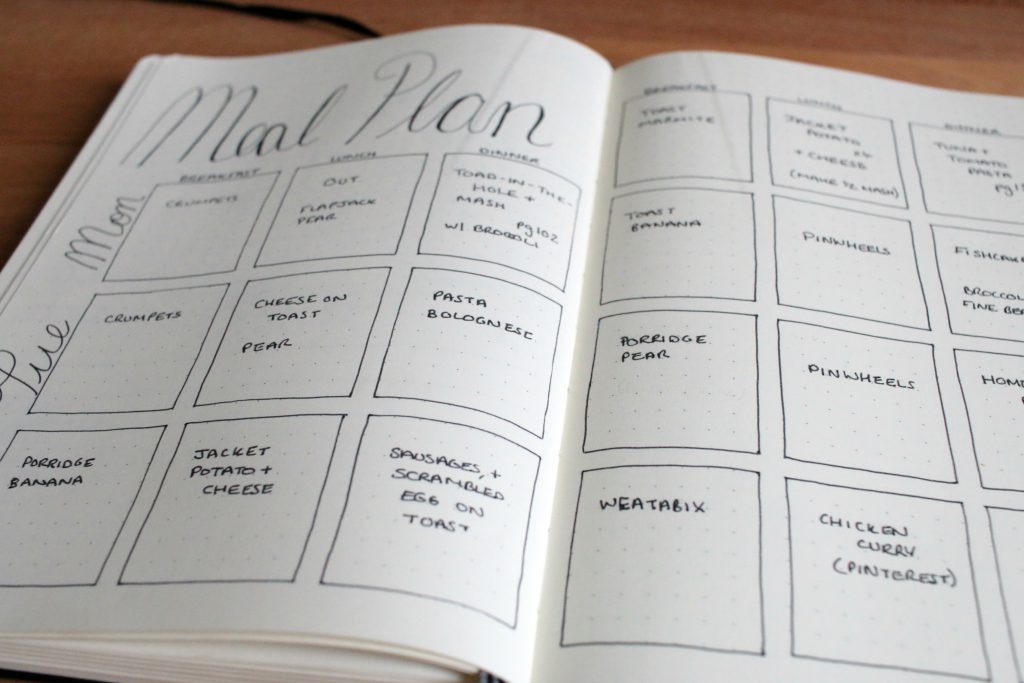 Meal Plan
Mon
BREAKFAST
LUNCH
DINNER
CRUMPETS
OUT
FLAPJACK
PEAR
TOAD-IN-THE-
HOLE +
MASH
pg102
W/ BROCOLI
Tue
CRUMPETS
CHEESE ON
TOAST
PEAR
PASTA
BOLOGNESE
PORRIDGE
BANANA
JACKET
POTATO +
CHEESE
SAUSAGES, +
SCRAMBLED
EGG ON
TOAST
BREAKFAST
LUNCH
DINNER
TOAST
MARMITE
JACKET
POTATO x4
+ CHEESE
(MAKE S2 MASH)
TUNA +
TOMATO
PASTA
TOAST
BANANA
PINWHEELS
FISHCAK
BROCCOL
FINE BE
PORRIDGE
PEAR
PINWHEELS
HOM
WEATABIX
CHICKEN
CURRY
(PINTEREST)